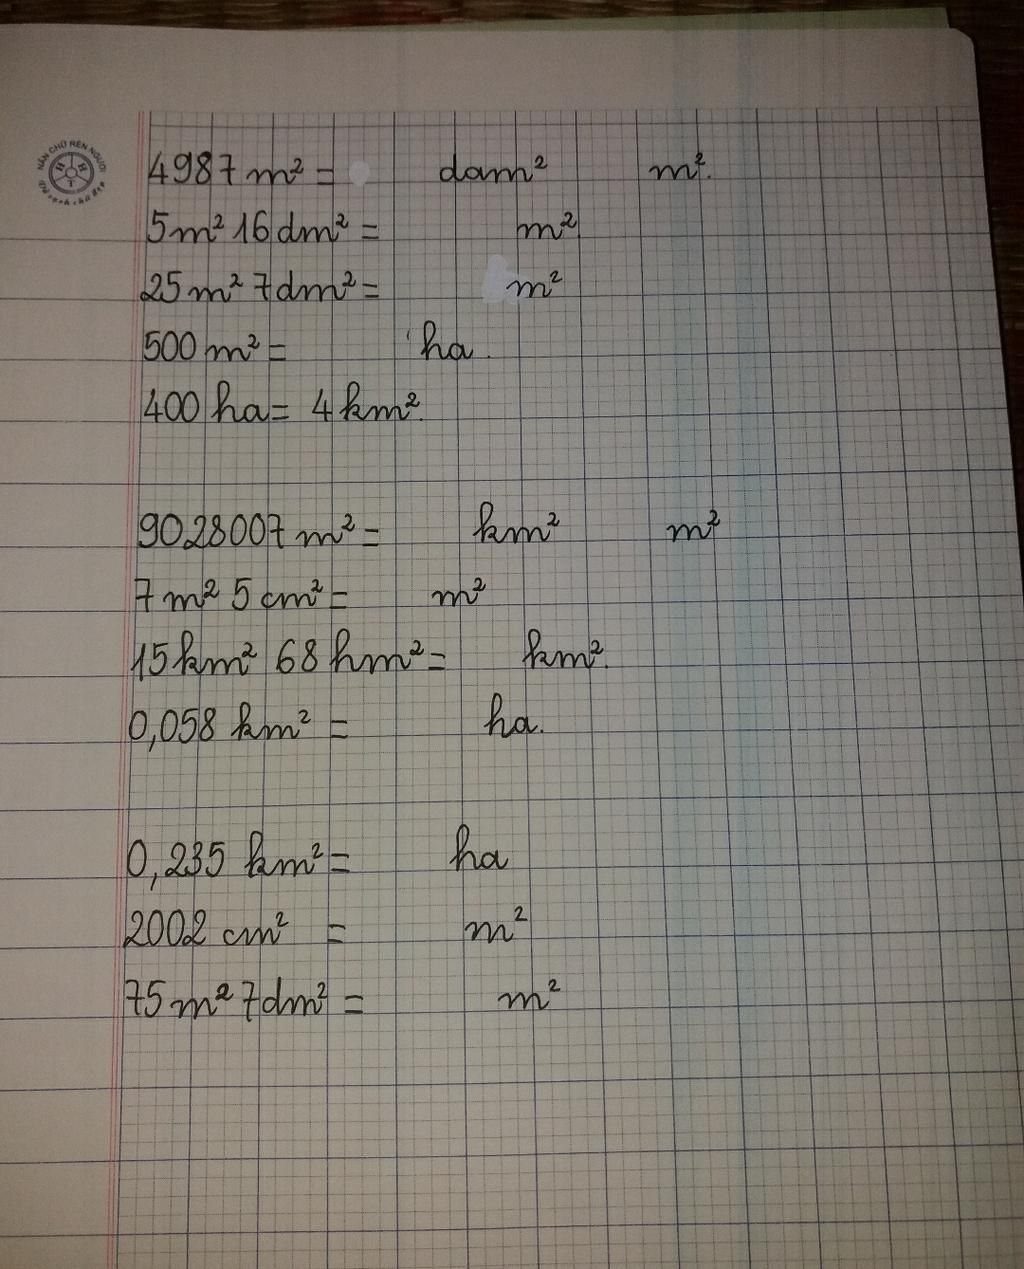 NẮN CHỮ RÈN NGƯỜI
4987 m² = dam² m².
5m² 16 dm² = m²
25 m² 7dm² = m²
500 m² = ha.
400 ha = 4 km².
9028007 m² = km² m²
7 m² 5 cm² = m²
15 km² 68 hm² = km².
0,058 km² = ha.
0,235 km² = ha
2002 cm² = m²
75 m² 7dm² = m²